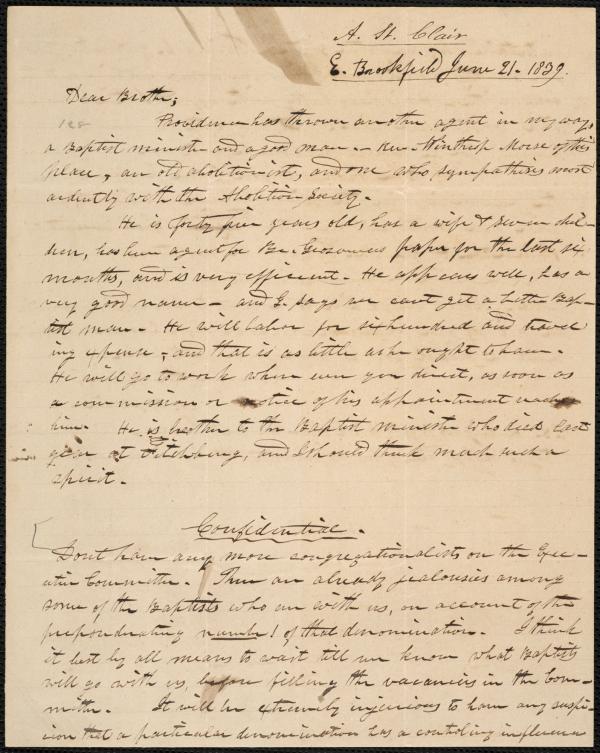 A. St. Clair
E. Brookfield June 21. 1839.
Dear Brother;
Providence has thrown another agent in my way,
a Baptist minister and a good man. - Rev. Winthrop Morse of this
place, an old abolitionist, and one who sympathises most
ardently with the Abolition Society.
He is forty five years old, has a wife & seven chil-
dren, has been agent for Br. Grosvenor's paper for the last six
months, and is very efficient. He appears well, has a
very good name - and G. says we can't get a better Bap-
tist man. He will labor for six hundred and travel
ing expense, and that is as little as he ought to have.
He will go to work where ever you direct, as soon as
a commission or notice of his appointment reaches
him. He is brother to the Baptist minister who died last
year at Fitchburg, and I should think much such a
spirit.
Confidential.
Dont have any more congregationalists on the Exec-
utive Committee. There are already jealousies among
some of the Baptists who are with us, on account of the
preponderating number of that denomination. I think
it best by all means to wait till we know what Baptists
will go with us, before filling the vacancies in the Com-
mittee. It will be extremely injurious to have any suspi-
cion that a particular denomination has a controling influence